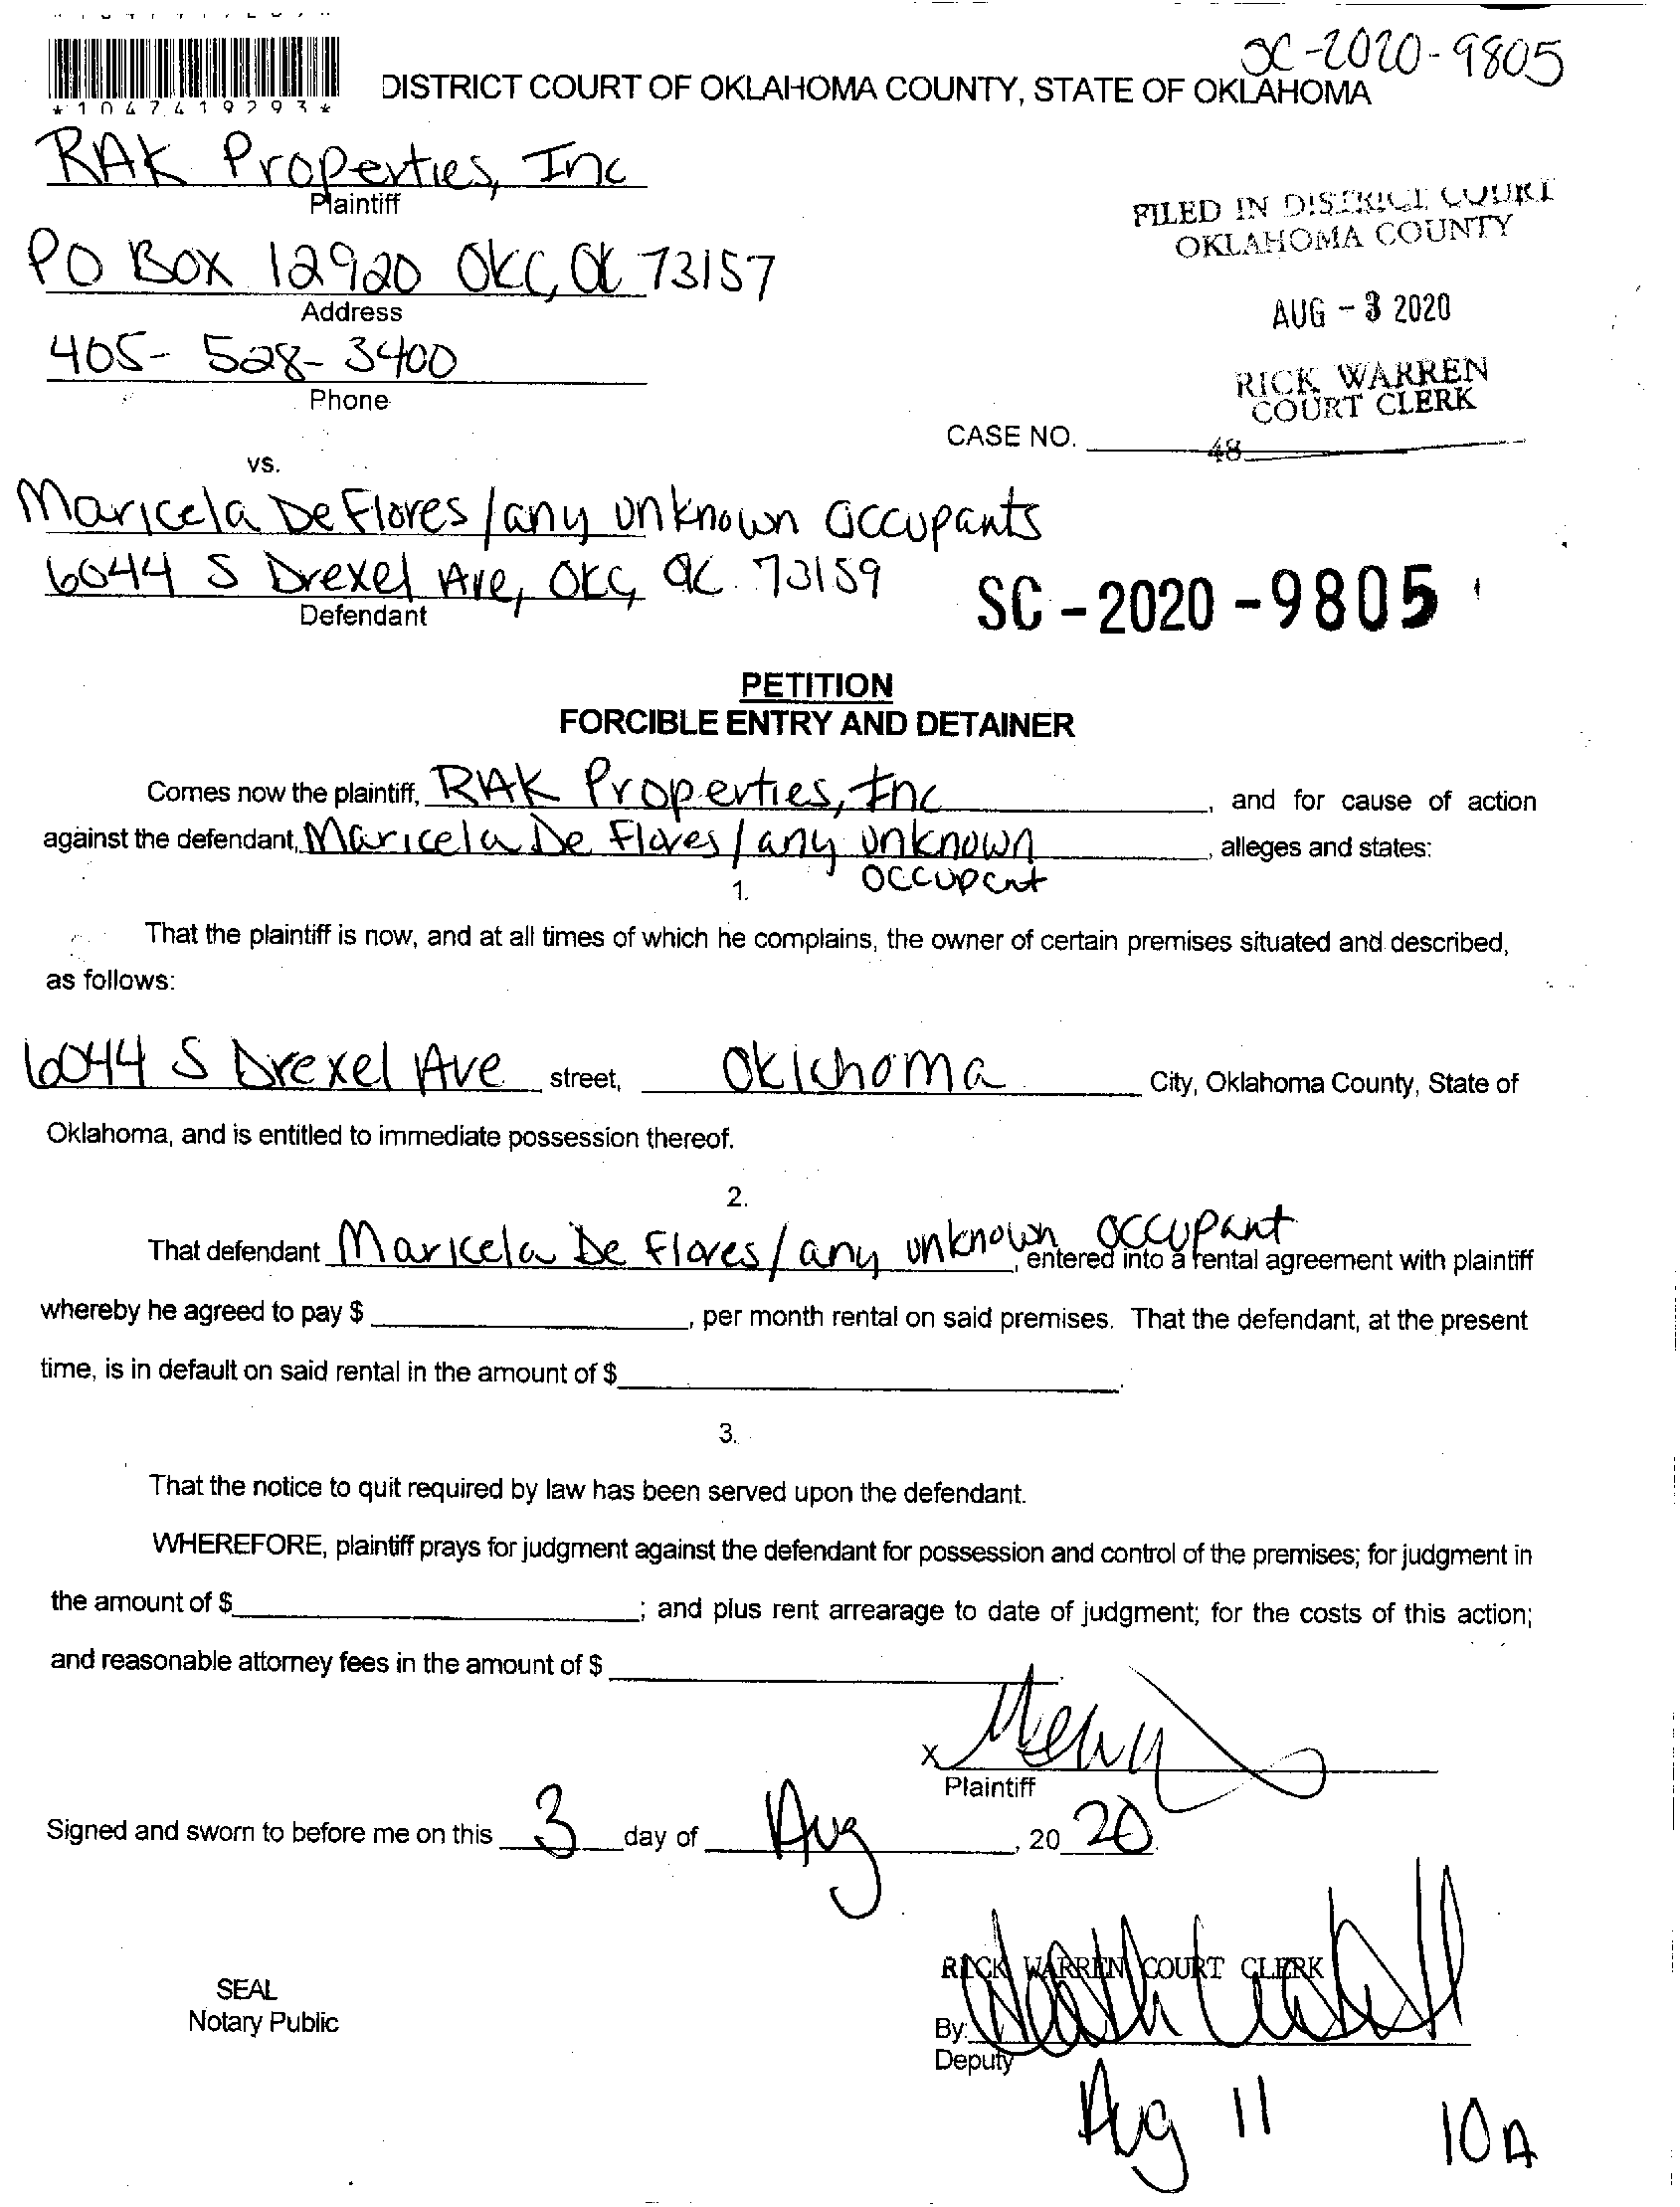 SC-2020-9805
*1047419293*
DISTRICT COURT OF OKLAHOMA COUNTY, STATE OF OKLAHOMA
RAK Properties, Inc
Plaintiff
FILED IN DISTRICT COURT
OKLAHOMA COUNTY
PO Box 12920 OKC, OK 73157
Address
AUG - 3 2020
405-528-3400
Phone
RICK WARREN
COURT CLERK
CASE NO.
48
vs.
Maricela De Flores / any unknown occupants
6044 S Drexel Ave, OKC, OK 73159
Defendant
SC - 2020 - 9805
PETITION
FORCIBLE ENTRY AND DETAINER
Comes now the plaintiff, RAK Properties, Inc, and for cause of action
against the defendant, Maricela De Flores / any unknown, alleges and states:
occupant
1.
That the plaintiff is now, and at all times of which he complains, the owner of certain premises situated and described,
as follows:
6044 S Drexel Ave street, Oklahoma City, Oklahoma County, State of
Oklahoma, and is entitled to immediate possession thereof.
2.
That defendant Maricela De Flores / any unknown occupant, entered into a rental agreement with plaintiff
whereby he agreed to pay $, per month rental on said premises. That the defendant, at the present
time, is in default on said rental in the amount of $.
3.
That the notice to quit required by law has been served upon the defendant.
WHEREFORE, plaintiff prays for judgment against the defendant for possession and control of the premises; for judgment in
the amount of $; and plus rent arrearage to date of judgment; for the costs of this action;
and reasonable attorney fees in the amount of $.
X
Plaintiff
Signed and sworn to before me on this 3 day of Aug, 20 20.
RICK WARREN COURT CLERK
SEAL
Notary Public
By:
Deputy
Aug 11 10A